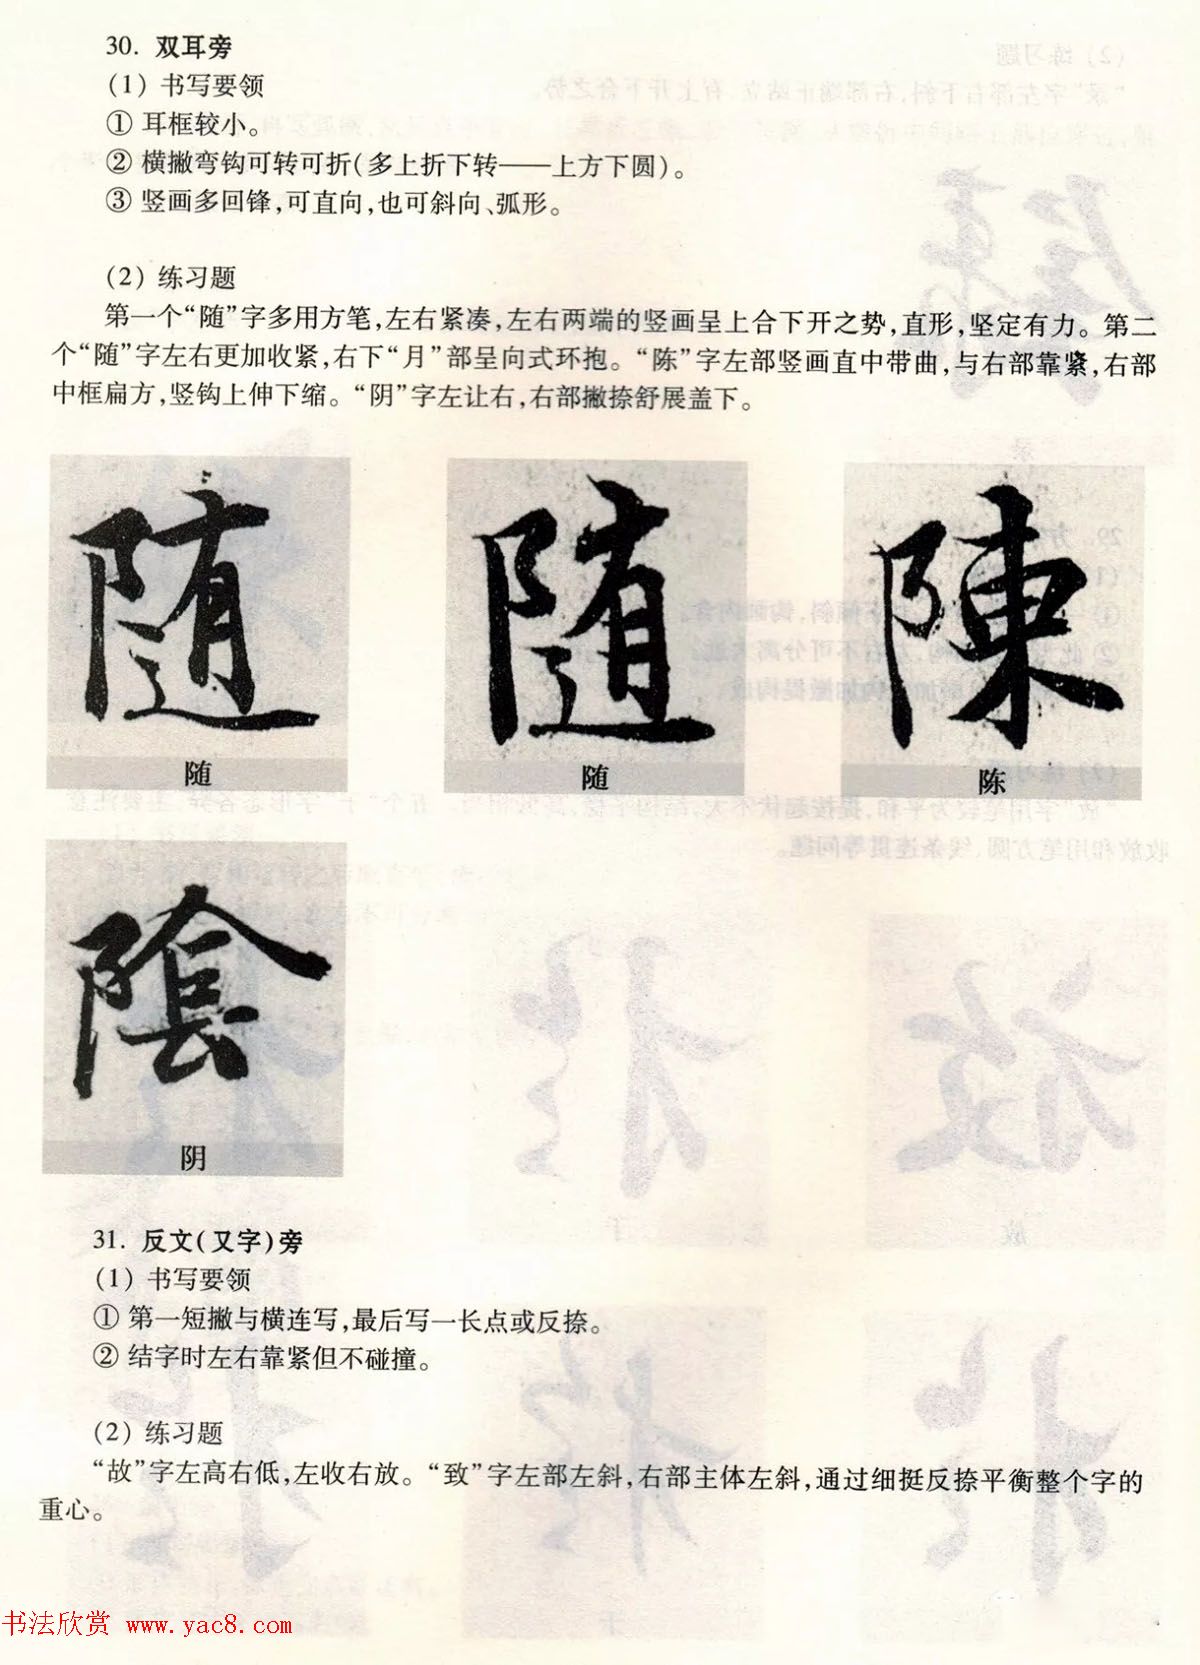 30. 双耳旁
(1) 书写要领
① 耳框较小。
② 横撇弯钩可转可折(多上折下转——上方下圆)。
③ 竖画多回锋,可直向,也可斜向、弧形。
(2) 练习题
第一个“随”字多用方笔,左右紧凑,左右两端的竖画呈上合下开之势,直形,坚定有力。第二
个“随”字左右更加收紧,右下“月”部呈向式环抱。“陈”字左部竖画直中带曲,与右部靠紧,右部
中框扁方,竖钩上伸下缩。“阴”字左让右,右部撇捺舒展盖下。
随 随 陳
随 随 陈
陰
阴
31. 反文(又字)旁
(1) 书写要领
① 第一短撇与横连写,最后写一长点或反捺。
② 结字时左右靠紧但不碰撞。
(2) 练习题
“故”字左高右低,左收右放。“致”字左部左斜,右部主体左斜,通过细挺反捺平衡整个字的
重心。
书法欣赏 www.yac8.com